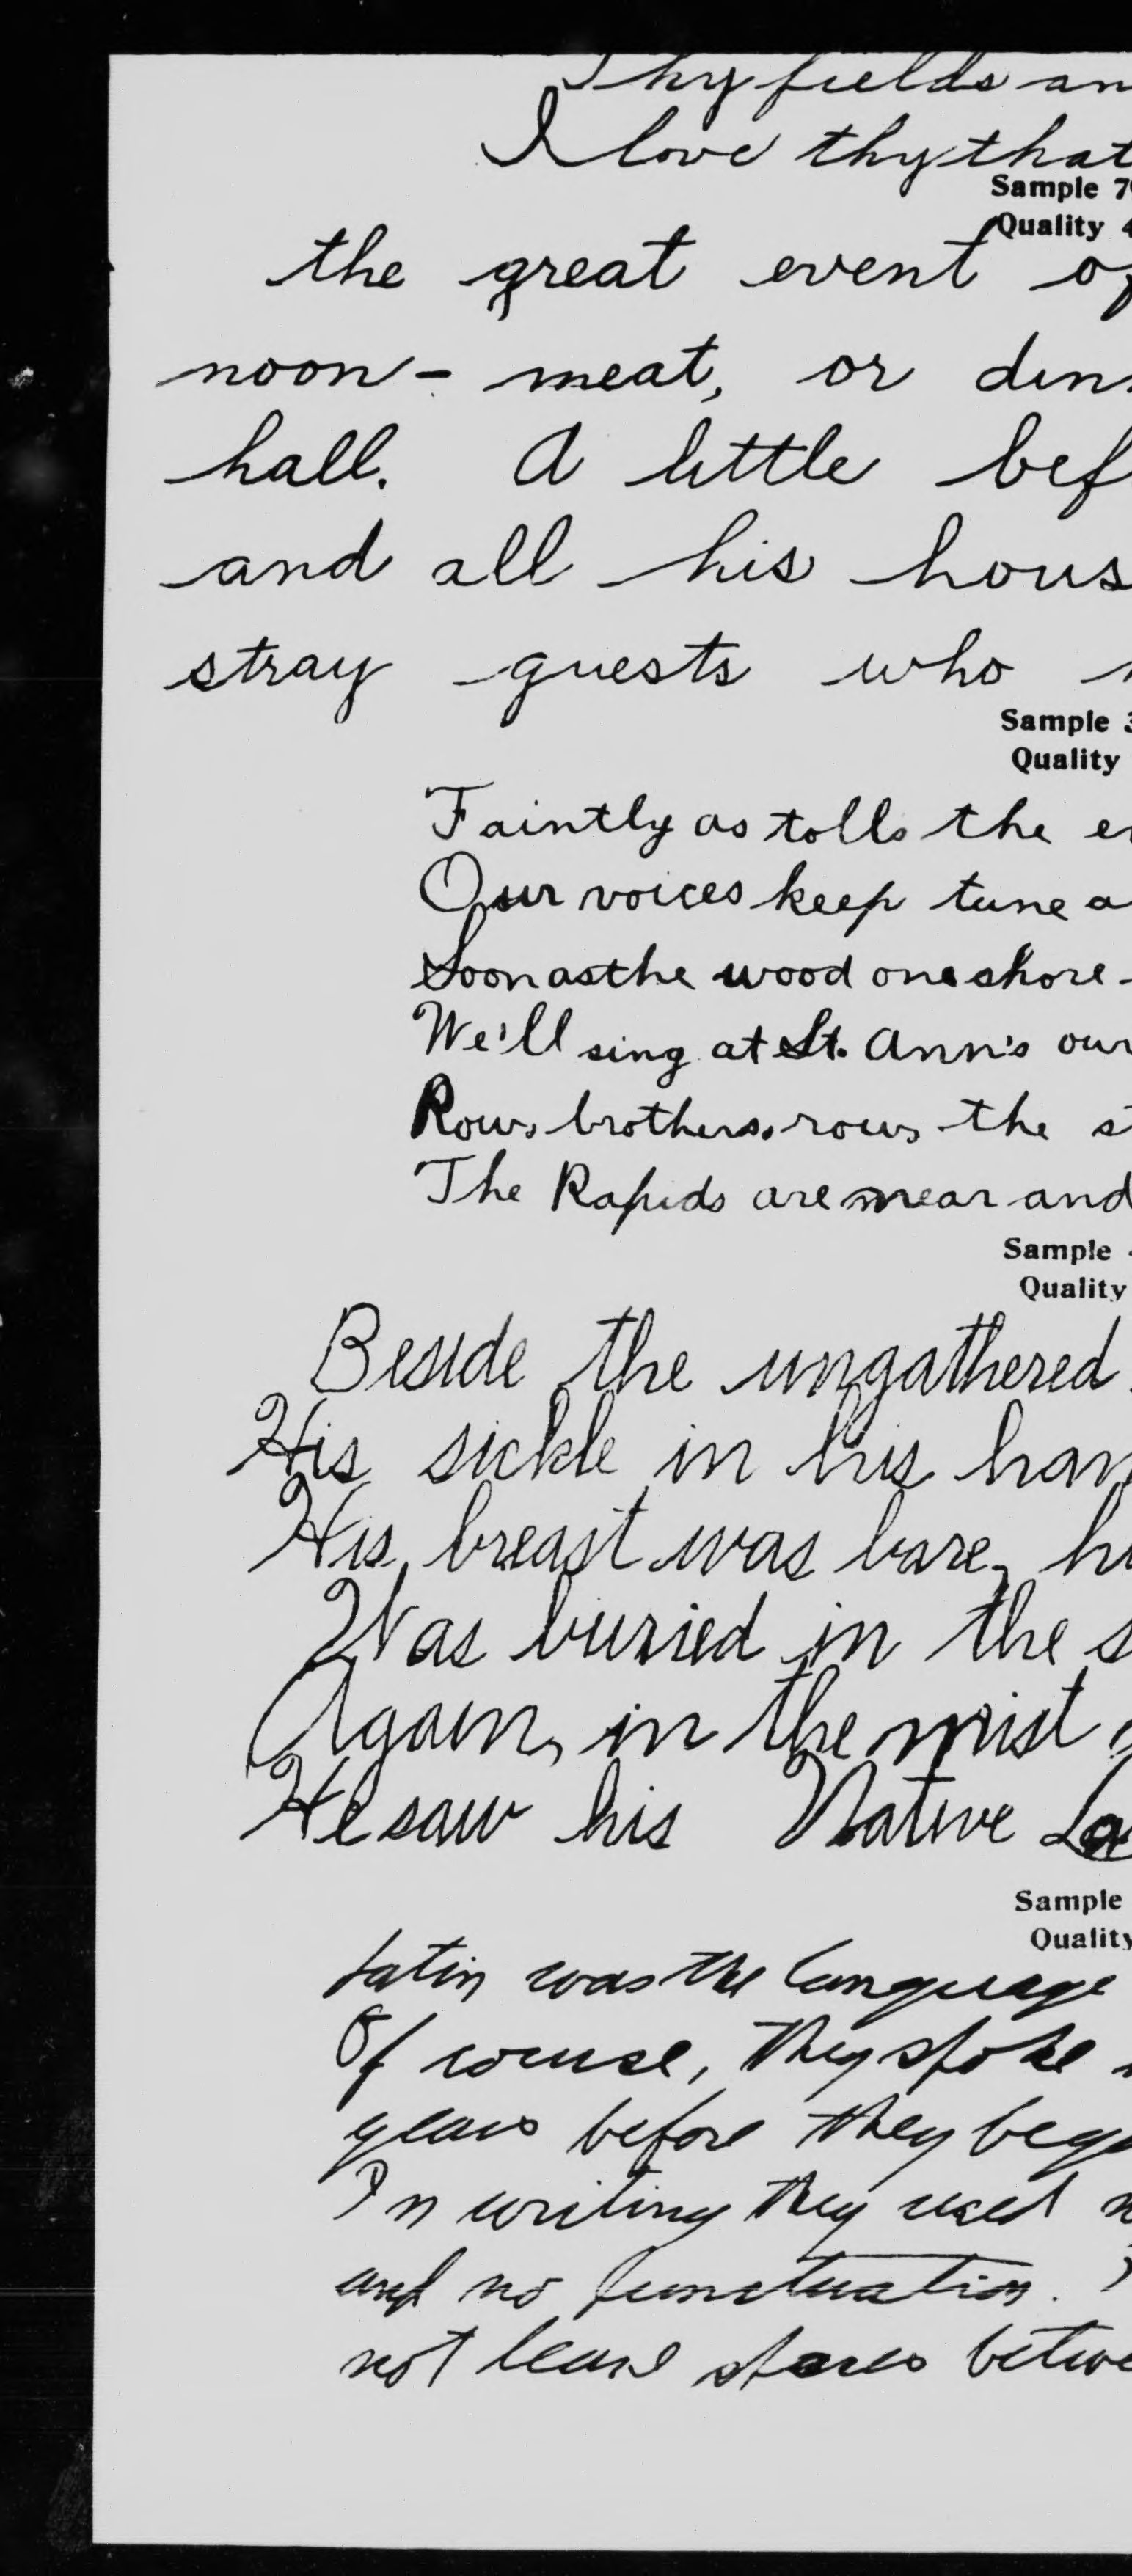 Thy fields an
I love thy that
Sample 7
Quality 4
the great event of
noon- meat, or din
hall. A little bef
and all his hous
stray guests who
Sample 3
Quality
Faintly as tolls the e
Our voices keep tune a
Soon as the wood one shore -
We'll sing at St. Ann's our
Row, brothers, row, the s
The Rapids are near and
Sample
Quality
Beside the ungathered
His sickle in his han
His breast was bare, hi
Was buried in the s
Again, in the mist
He saw his Native La
Sample
Quality
Latin was the language
Of course, they spoke
years before they beg
In writing they used n
and no punctuation.
not leave spaces betwe